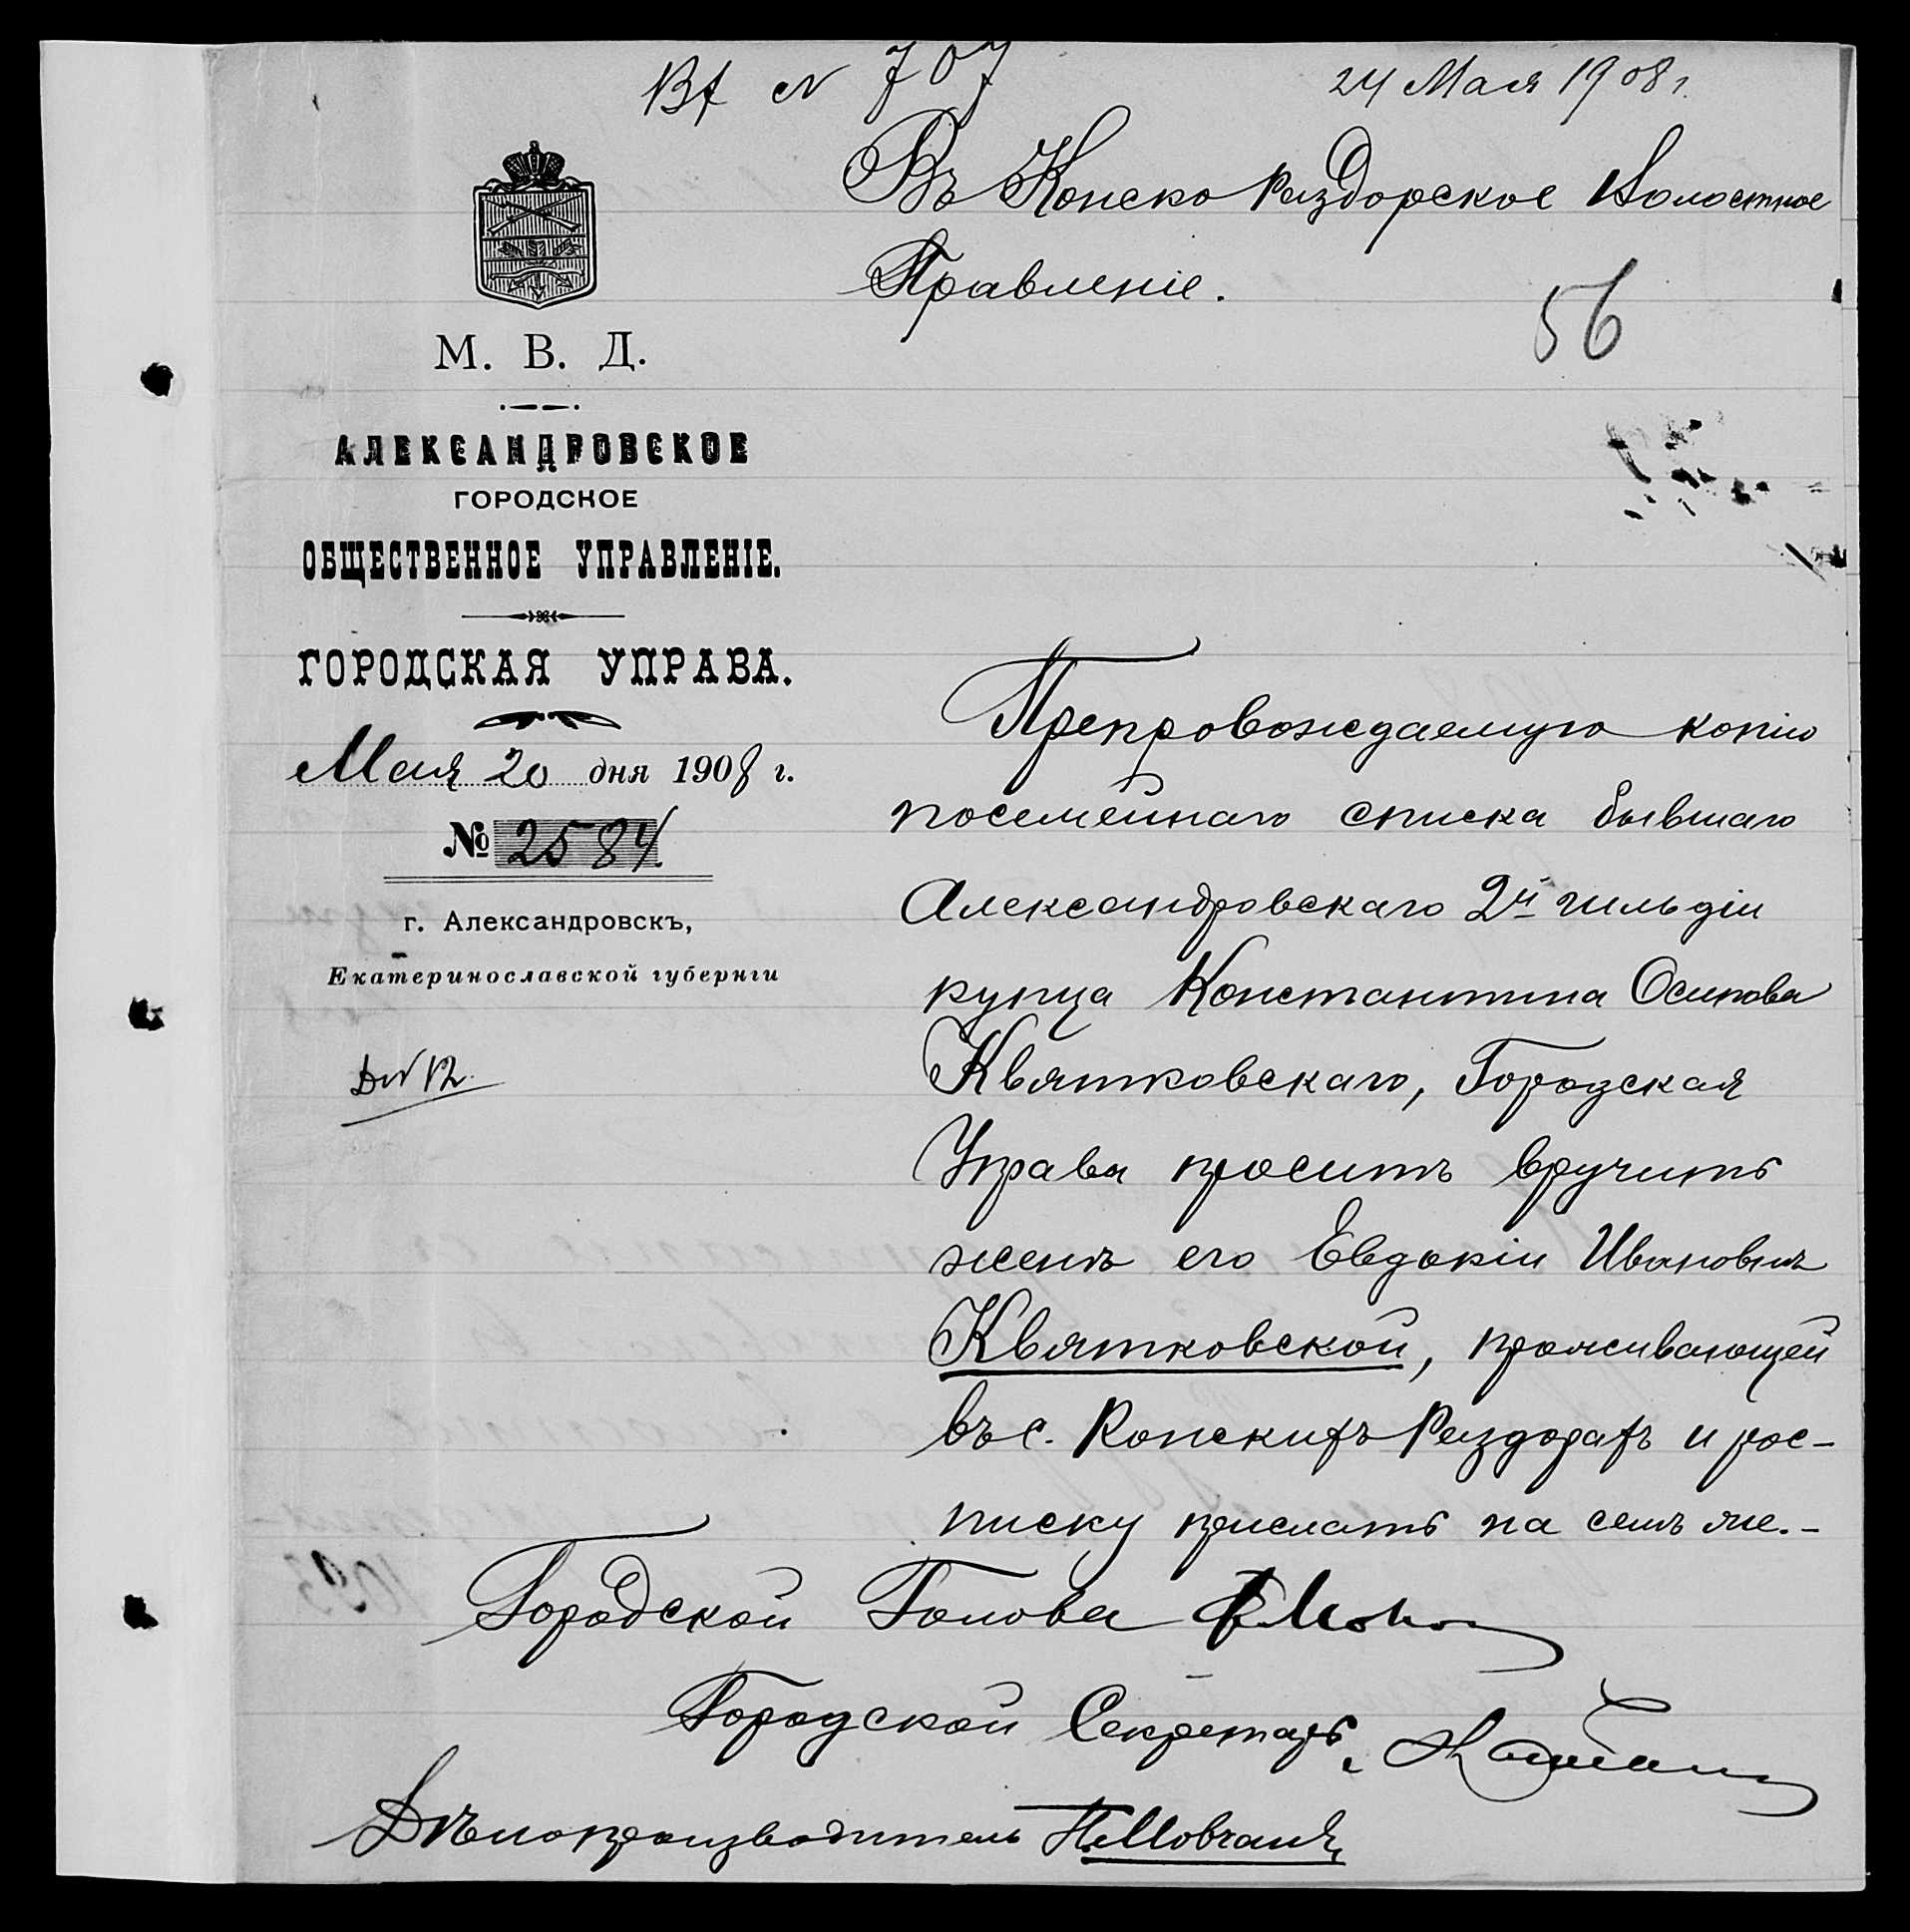 Вх N 707
24 Мая 1908 г.
Въ Конско Раздорское Волостное
Правленіе.
56
М. В. Д.
АЛЕКСАНДРОВСКОЕ
ГОРОДСКОЕ
ОБЩЕСТВЕННОЕ УПРАВЛЕНІЕ.
ГОРОДСКАЯ УПРАВА.
Мая 20 дня 1908 г.
№ 2584
г. Александровскъ,
Екатеринославской губерніи
Препровождаемую копію
посемейнаго списка бывшаго
Александровскаго 2й гильдіи
купца Константина Осипова
Квятковскаго, Городская
Управа проситъ вручить
женѣ его Евдокіи Ивановнѣ
Квятковской, проживающей
въ с. Конскихъ Раздорахъ и рос-
писку прислать на семъ же.-
Городской Голова
Городской Секретарь
Дѣлопроизводитель